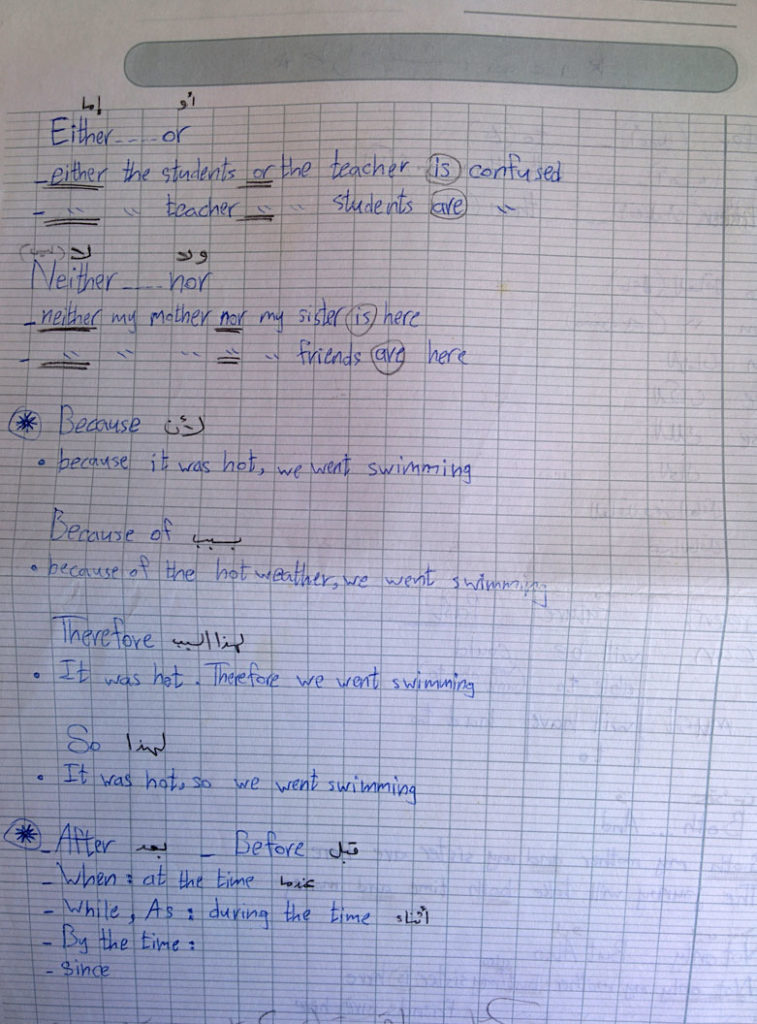 إما أو
Either .... or
- either the students or the teacher is confused
- " " teacher " " students are "
لا ولا
Neither .... nor
- neither my mother nor my sister is here
- " " " " " friends are here
Because لأن
• because it was hot, we went swimming
Because of بسبب
• because of the hot weather, we went swimming
Therefore لهذا السبب
• It was hot. Therefore we went swimming
So لهذا
• It was hot, so we went swimming
- After بعد - Before قبل
- When : at the time عندما
- While, As : during the time أثناء
- By the time :
- since